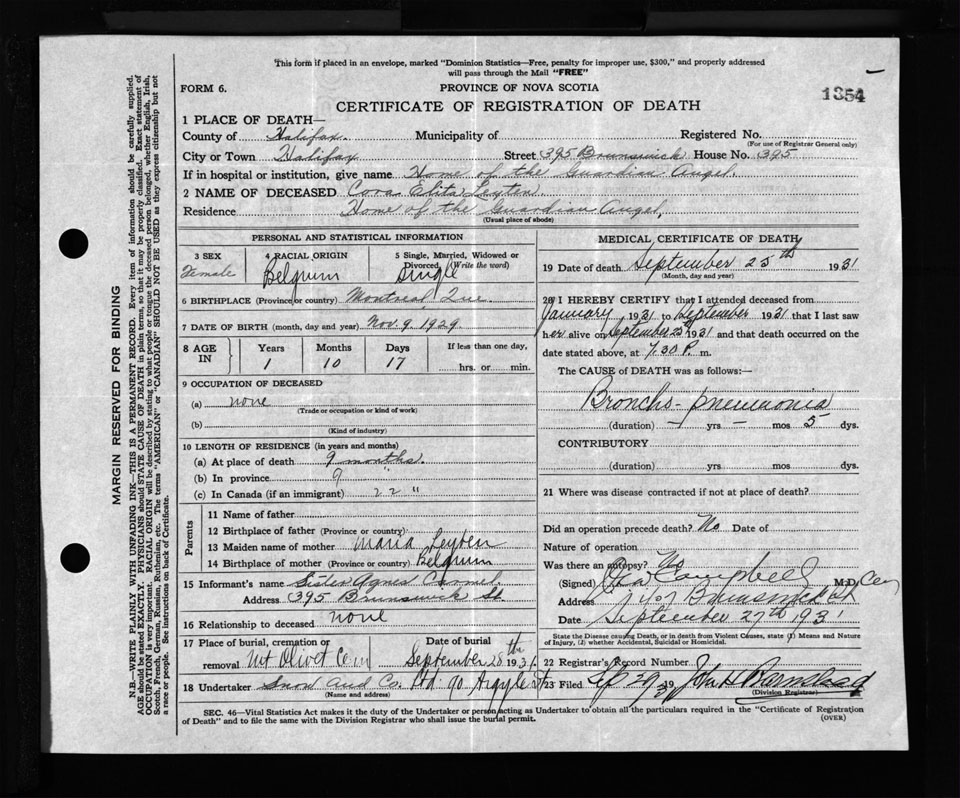 This form if placed in an envelope, marked "Dominion Statistics—Free, penalty for improper use, $300," and properly addressed
will pass through the Mail "FREE"
FORM 6.
PROVINCE OF NOVA SCOTIA
1354
CERTIFICATE OF REGISTRATION OF DEATH
1 PLACE OF DEATH—
County of Halifax Municipality of Registered No.
(For use of Registrar General only)
City or Town Halifax Street 395 Brunswick House No. 395
If in hospital or institution, give name Home of the Guardian Angel.
2 NAME OF DECEASED Cora Elita Leyten
Residence Home of the Guardian Angel,
(Usual place of abode)
PERSONAL AND STATISTICAL INFORMATION
3 SEX Female
4 RACIAL ORIGIN Belgium
5 Single, Married, Widowed or Divorced (Write the word) Single
6 BIRTHPLACE (Province or country) Montreal Que
7 DATE OF BIRTH (month, day and year) Nov. 9. 1929
8 AGE IN Years 1 Months 10 Days 17 If less than one day, hrs. or min.
9 OCCUPATION OF DECEASED
(a) none
(Trade or occupation or kind of work)
(b)
(Kind of industry)
10 LENGTH OF RESIDENCE (in years and months)
(a) At place of death 9 months.
(b) In province 9 "
(c) In Canada (if an immigrant) 22 "
Parents
11 Name of father
12 Birthplace of father (Province or country)
13 Maiden name of mother Maria Leyten
14 Birthplace of mother (Province or country) Belgium
15 Informant's name Sister Agnes Carmel
Address 395 Brunswick St.
16 Relationship to deceased none
17 Place of burial, cremation or removal Mt Olivet Cem
Date of burial September 28th 1931
18 Undertaker Snow and Co. Ltd. 90 Argyle St
(Name and address)
MEDICAL CERTIFICATE OF DEATH
19 Date of death September 25th 1931
(Month, day and year)
20 I HEREBY CERTIFY that I attended deceased from
January 1931 to September 1931 that I last saw
her alive on September 25th 1931 and that death occurred on
date stated above, at 7.30 P. m.
The CAUSE of DEATH was as follows:—
Broncho-pneumonia
(duration) – yrs – mos 5 dys.
CONTRIBUTORY
(duration) yrs mos dys.
21 Where was disease contracted if not at place of death?
Did an operation precede death? No Date of
Nature of operation
Was there an autopsy? No
(Signed) Campbell M.D.
Address Brunswick St
Date September 27th 1931
State the Disease causing Death, or in death from Violent Causes, state (1) Means and Nature
of Injury, (2) whether Accidental, Suicidal or Homicidal.
22 Registrar's Record Number
23 Filed Sep 29 1931 John H Barnstead
(Division Registrar)
SEC. 46—Vital Statistics Act makes it the duty of the Undertaker or person acting as Undertaker to obtain all the particulars required in the "Certificate of Registration
of Death" and to file the same with the Division Registrar who shall issue the burial permit.
(OVER)
MARGIN RESERVED FOR BINDING
N.B.—WRITE PLAINLY WITH UNFADING INK—THIS IS A PERMANENT RECORD. Every item of information should be carefully supplied.
AGE should be stated EXACTLY. PHYSICIANS should STATE CAUSE OF DEATH in plain terms, so that it may be properly classified. Exact statement of
OCCUPATION is very important. RACIAL ORIGIN will be described by stating to what people or tongue the deceased person belonged, whether English, Irish,
Scotch, French, German, Russian, Ruthenian, etc. The terms "AMERICAN" or "CANADIAN" SHOULD NOT BE USED as they express citizenship but not
a race or people. See instructions on back of Certificate.